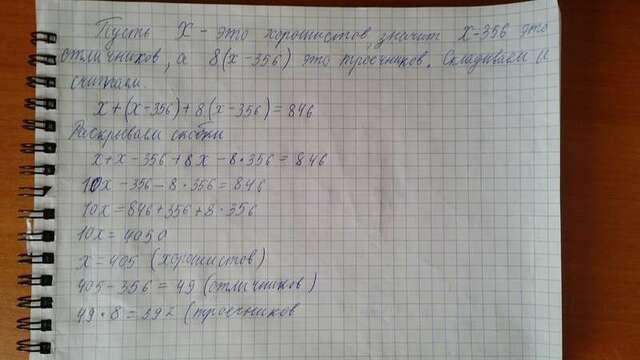 Пусть х - это хорошистов, значит х-356 это
отличников, а 8(х-356) это троечников. Складываем и
считаем.
х+(х-356)+8(х-356)=846
Раскрываем скобки
х+х-356+8х-8·356=846
10х-356-8·356=846
10х=846+356+8·356
10х=4050
х=405 (хорошистов)
405-356=49 (отличников)
49·8=392 (троечников